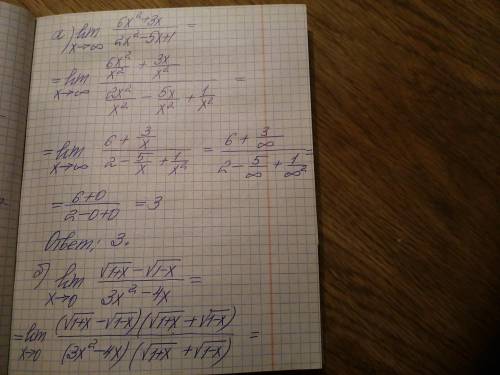 а) lim x→∞ (6x²+3x)/(2x²-5x+1) =
= lim x→∞ (6x²/x² + 3x/x²)/(2x²/x² - 5x/x² + 1/x²) =
= lim x→∞ (6 + 3/x)/(2 - 5/x + 1/x²) = (6 + 3/∞)/(2 - 5/∞ + 1/∞²) =
= (6+0)/(2-0+0) = 3
Ответ: 3.
б) lim x→0 (√1+x - √1-x)/(3x² - 4x) =
= lim x→0 (√1+x - √1-x)(√1+x + √1-x)/(3x²-4x)(√1+x + √1-x) =